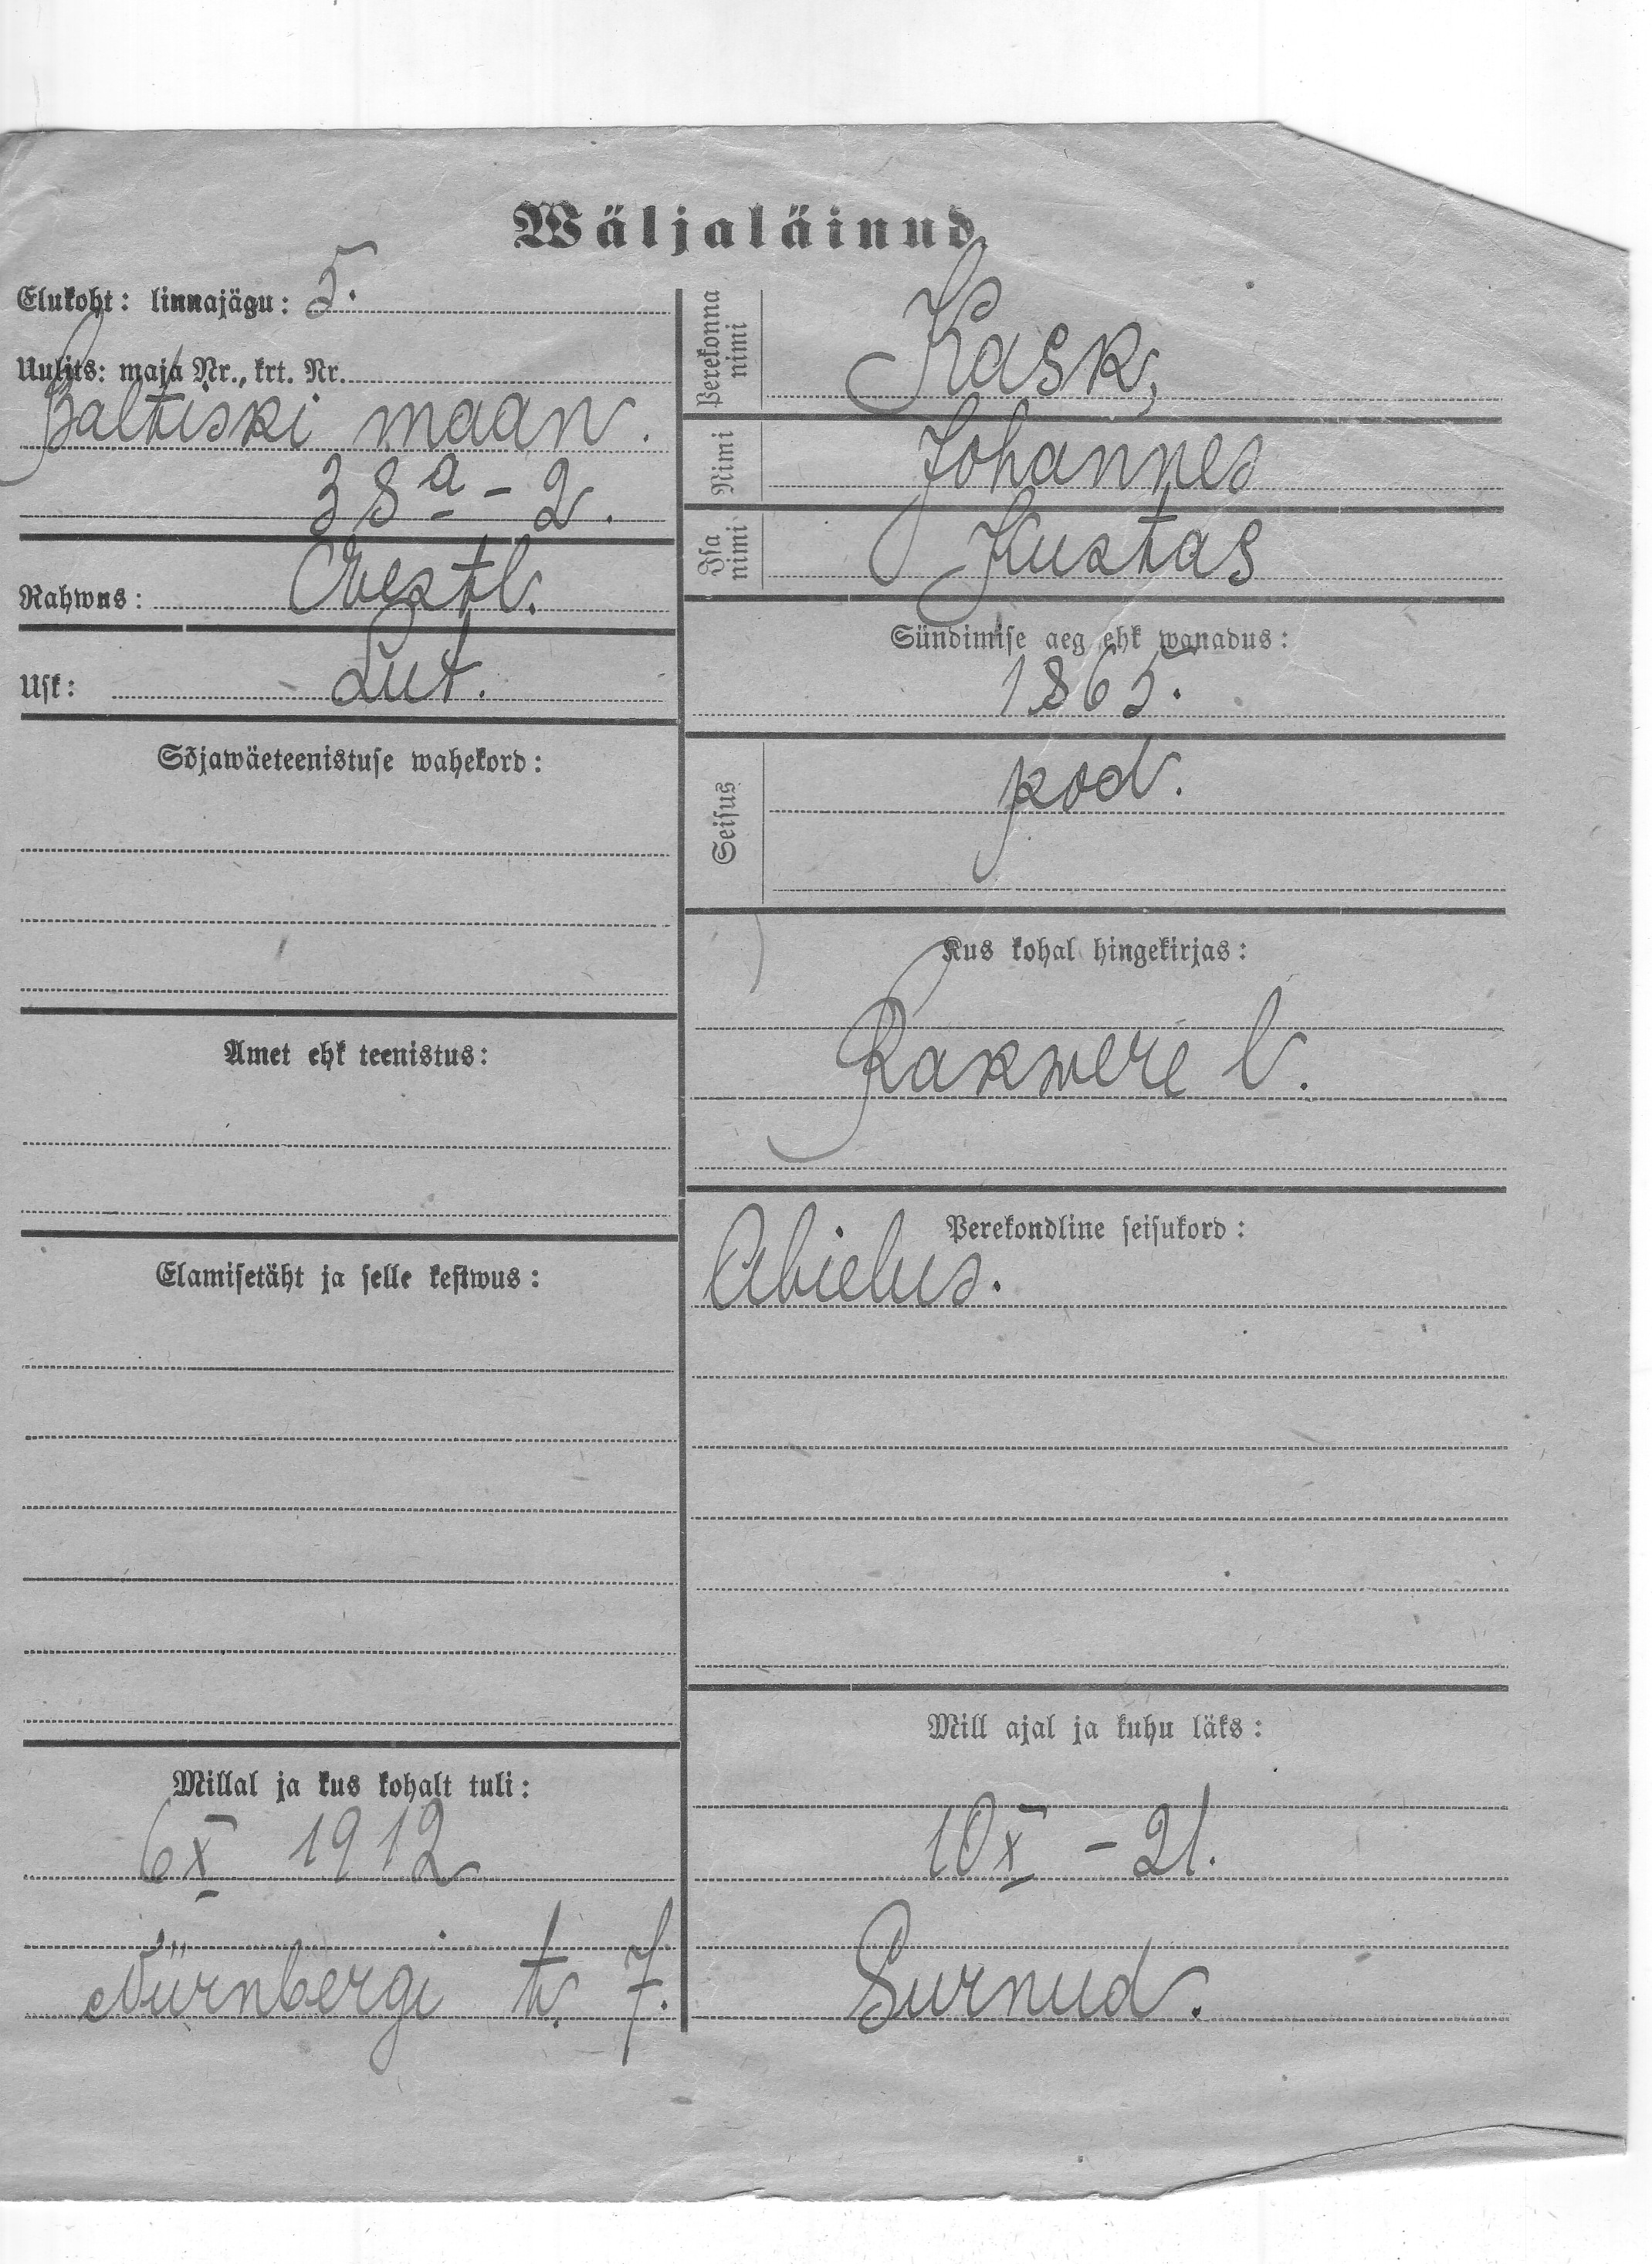 Wäljaläinud
Elukoht: linnajägu: 5.
Uulits: maja Nr., krt. Nr.
Baltiski maan.
38a - 2.
Rahwus: Eestl.
Usk: Lut.
Sõjawäeteenistuse wahekord:
Amet ehk teenistus:
Elamisetäht ja selle kestwus:
Millal ja kus kohalt tuli:
6 X 1912
Nürnbergi tn. 7.
Perekonna nimi Kask,
Nimi Johannes
Isa nimi Kustas
Sündimise aeg ehk wanadus:
1865.
Seisus kod.
Kus kohal hingekirjas:
Rakwere l.
Perekondline seisukord:
Abielus.
Mill ajal ja kuhu läks:
10 X - 21.
Surnud.